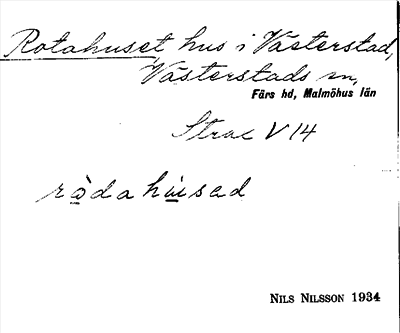 Rotahuset hus i Västerstad,
Västerstads sn,
Färs hd, Malmöhus län
Strac V 14
ràdahùsad
NILS NILSSON 1934